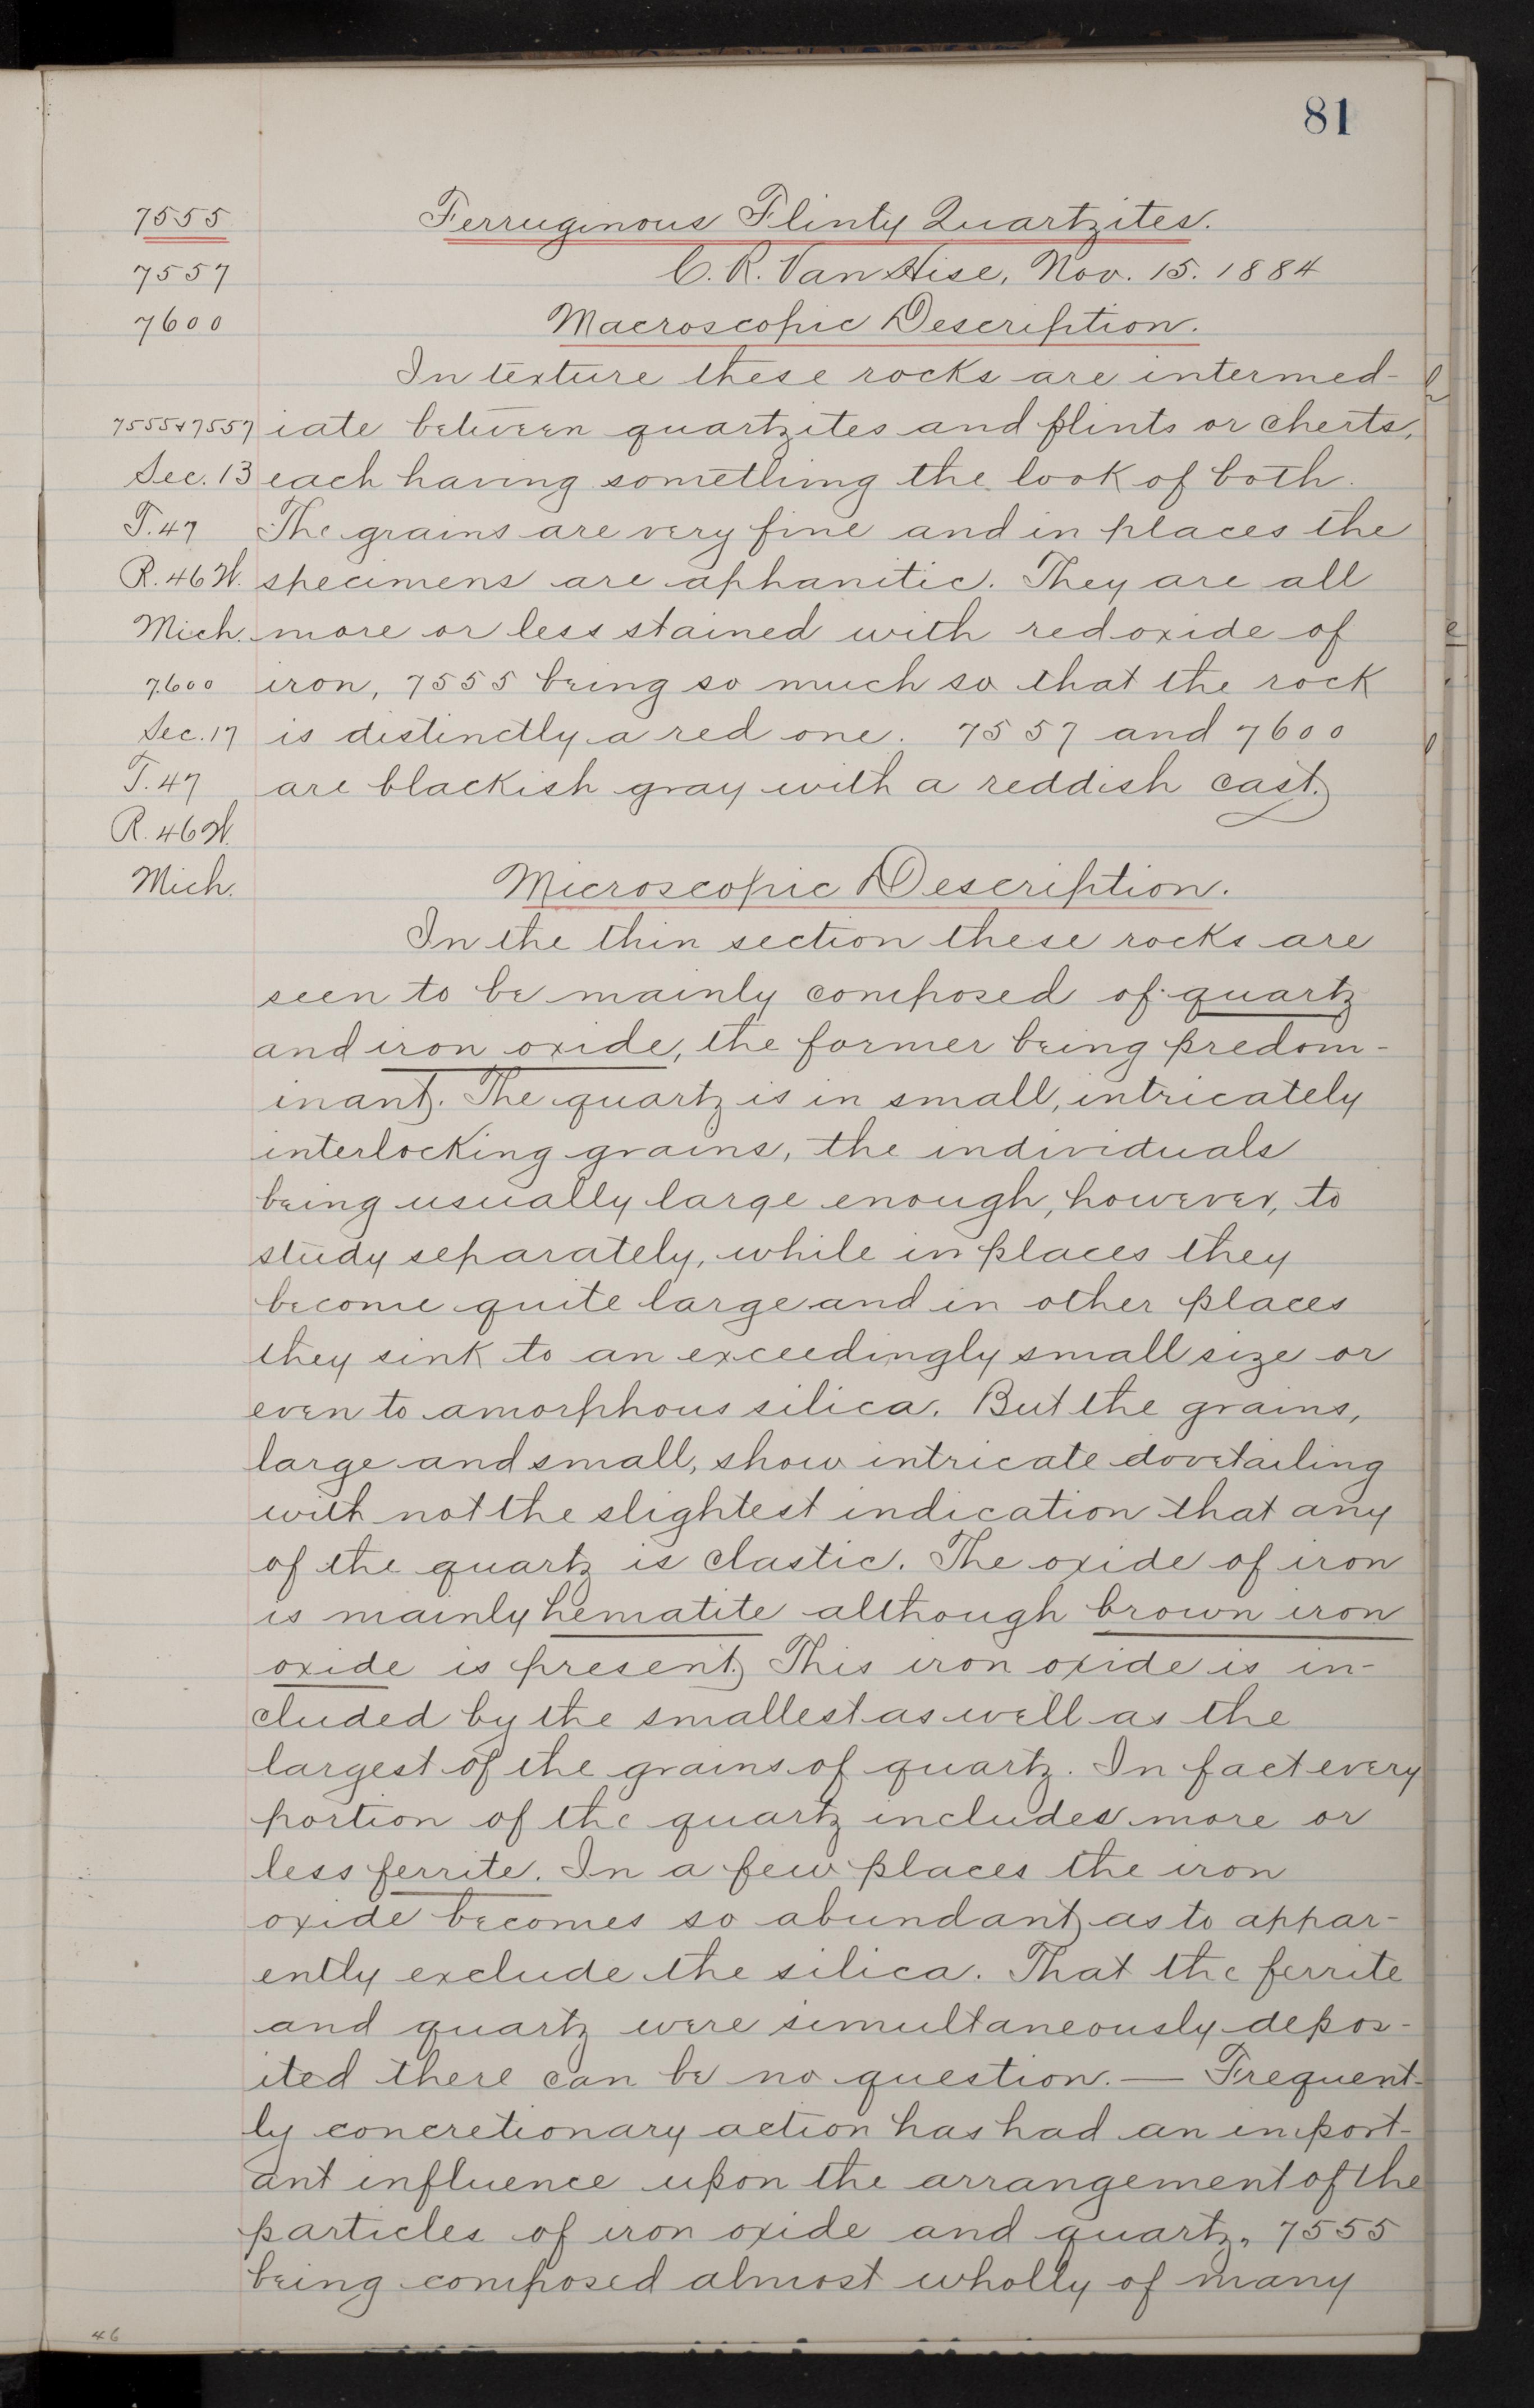 81
7555 Ferruginous Flinty Quartzites.
7557 C. R. Van Hise, Nov. 15. 1884
7600 Macroscopic Description.
In texture these rocks are intermed-
7555 & 7557 iate between quartzites and flints or cherts,
Sec. 13 each having something the look of both.
T. 47 The grains are very fine and in places the
R. 46 W. specimens are aphanitic. They are all
Mich. more or less stained with red oxide of
7600 iron, 7555 being so much so that the rock
Sec. 17 is distinctly a red one. 7557 and 7600
T. 47 are blackish gray with a reddish cast.
R. 46 W.
Mich. Microscopic Description.
In the thin section these rocks are
seen to be mainly composed of quartz
and iron oxide, the former being predom-
inant. The quartz is in small, intricately
interlocking grains, the individuals
being usually large enough, however, to
study separately, while in places they
become quite large and in other places
they sink to an exceedingly small size or
even to amorphous silica. But the grains,
large and small, show intricate dovetailing
with not the slightest indication that any
of the quartz is clastic. The oxide of iron
is mainly hematite although brown iron
oxide is present. This iron oxide is in-
cluded by the smallest as well as the
largest of the grains of quartz. In fact every
portion of the quartz includes more or
less ferrite. In a few places the iron
oxide becomes so abundant as to appar-
ently exclude the silica. That the ferrite
and quartz were simultaneously depos-
ited there can be no question. — Frequent-
ly concretionary action has had an import-
ant influence upon the arrangement of the
particles of iron oxide and quartz, 7555
being composed almost wholly of many
46